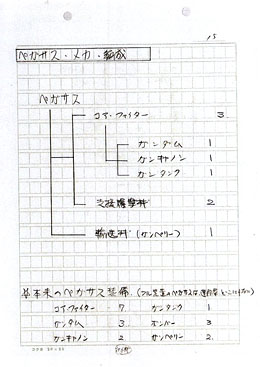 15
ペガサス・メカ・編成
ペガサス
コア・ファイター 3
ガンダム 1
ガンキャノン 1
ガンタンク 1
支援爆撃機 2
輸送機(ガンペリー) 1
基本本来のペガサス装備
コア・ファイター 7 ガンタンク 1
ガンダム 3
ガンキャノン 2 ガンペリー 2